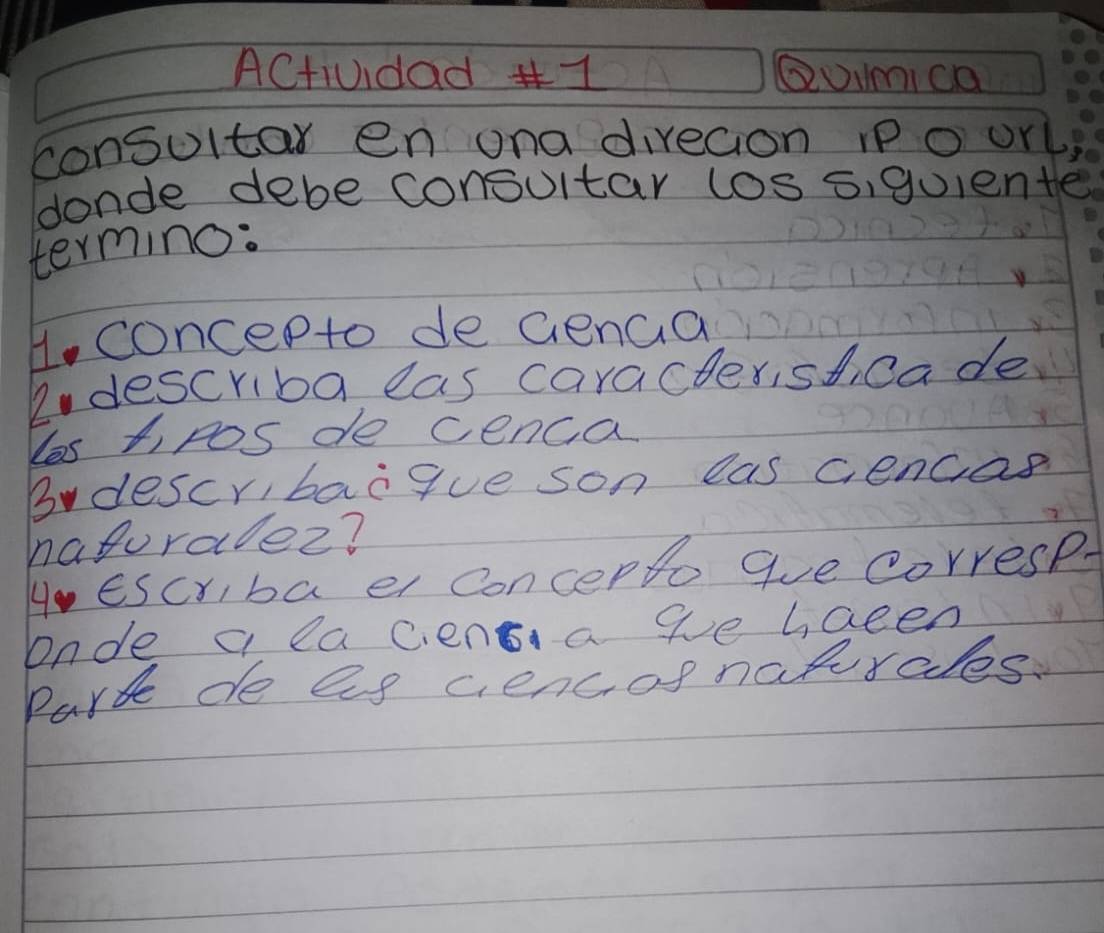 Actividad #1 Quimica
consultar en una direcion ip o url,
donde debe consultar los siguiente
termino:
1. concepto de ciencia
2. describa las caracteristica de
los tipos de cenca
3. describa ¿que son las ciencias
naturalez?
4. Escriba el concepto que corresp-
onde a la ciencia que hacen
parte de las ciencias naturales.